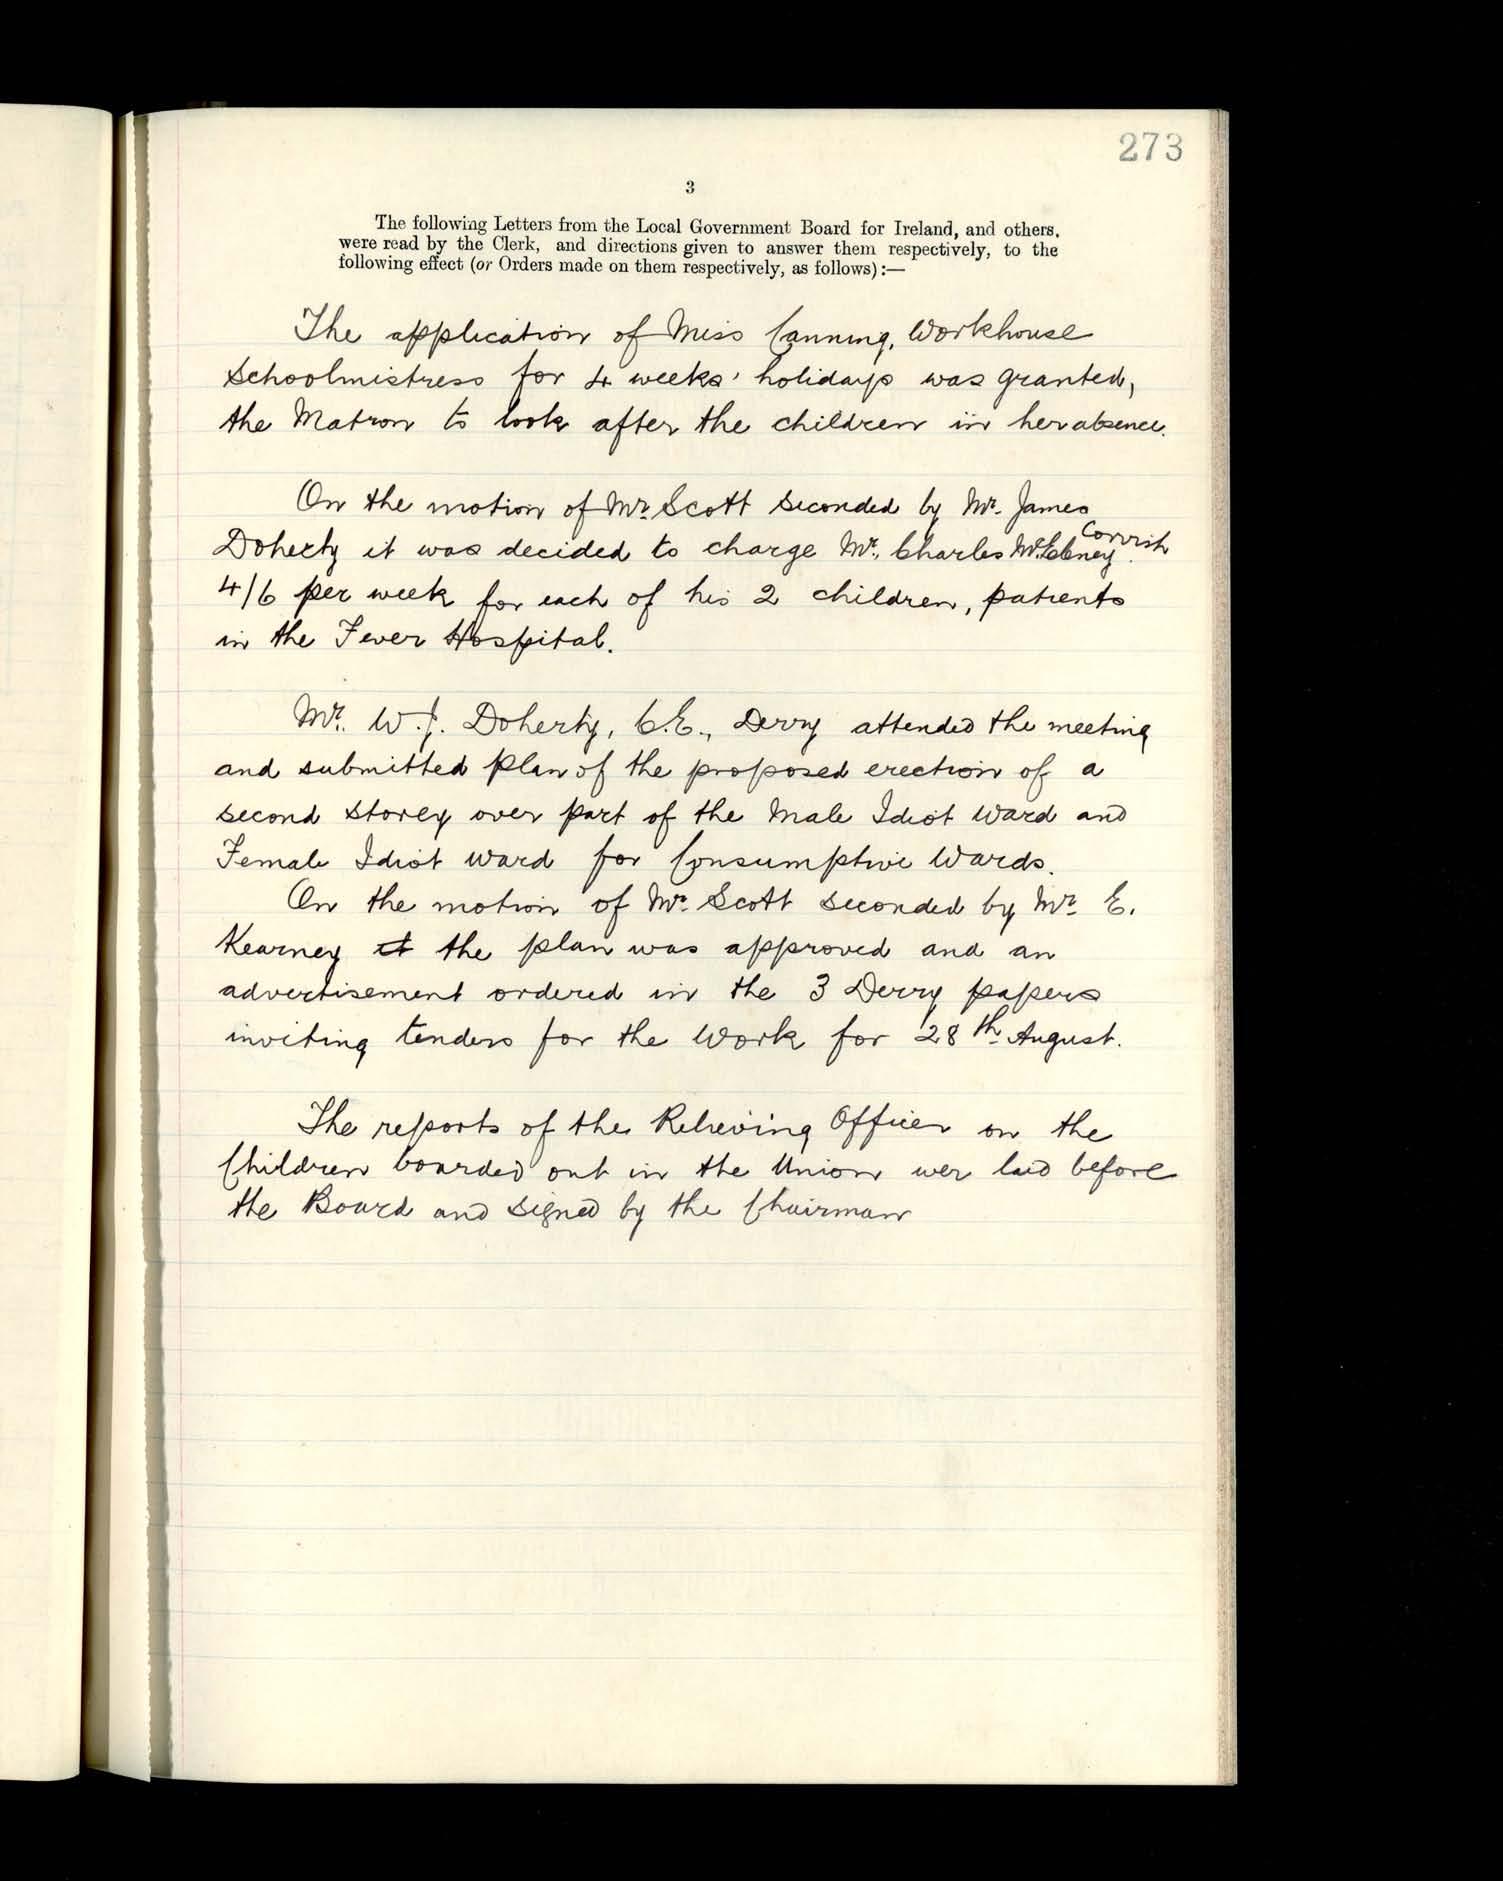 273
3
The following Letters from the Local Government Board for Ireland, and others,
were read by the Clerk, and directions given to answer them respectively, to the
following effect (or Orders made on them respectively, as follows):—
The application of Miss Canning, Workhouse
Schoolmistress for 4 weeks' holidays was granted,
the Matron to look after the children in her absence.
On the motion of Mr. Scott seconded by Mr. James
Corvish
Doherty it was decided to charge Mr. Charles
4/6 per week for each of his 2 children, patients
in the Fever Hospital.
Mr. W. J. Doherty, C.E., Derry attended the meeting
and submitted plan of the proposed erection of a
second storey over part of the Male Idiot Ward and
Female Idiot ward for Consumptive Wards.
On the motion of Mr. Scott seconded by Mr. E.
Kearney it the plan was approved and an
advertisement ordered in the 3 Derry papers
inviting tenders for the Work for 28th August.
The reports of the Relieving Officer on the
Children boarded out in the Union wer laid before
the Board and signed by the Chairman